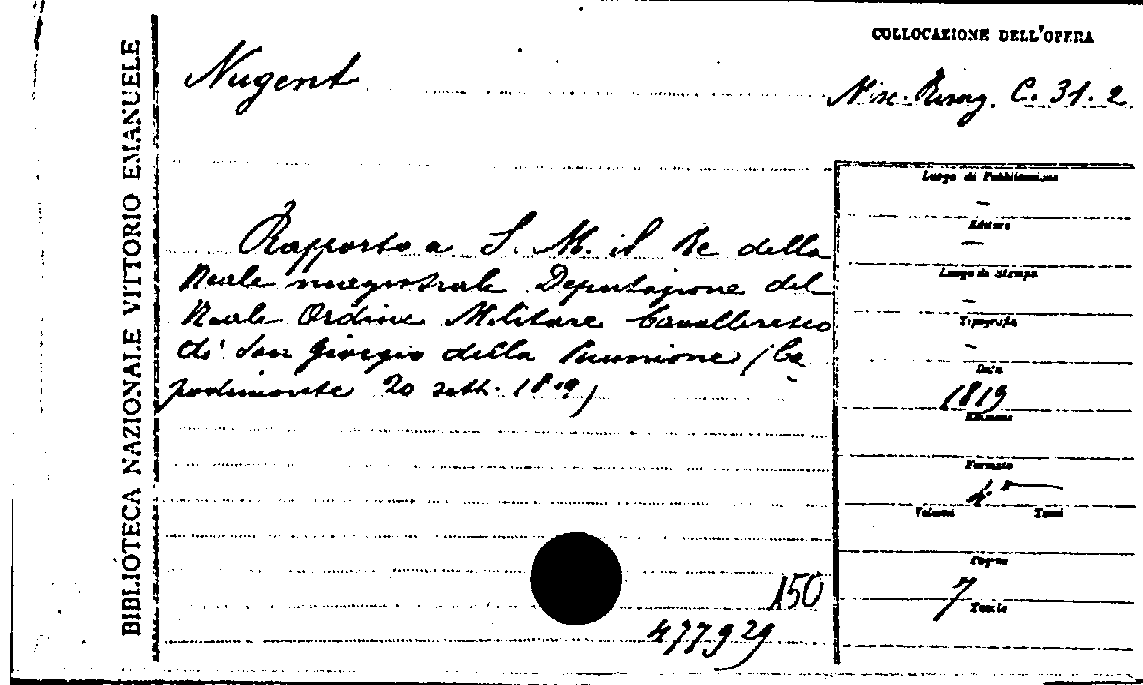 BIBLIOTECA NAZIONALE VITTORIO EMANUELE
COLLOCAZIONE DELL'OPERA
Nugent
Misc. Risorg. C. 31. 2
Rapporto a S. M. il Re della
Reale magistrale Deputazione del
Reale Ordine Militare Cavalleresco
di San Giorgio della Riunione (Ca
podimonte 20 sett. 1819)
Luogo di Pubblicazione
—
Editore
—
Luogo di stampa
—
Tipografia
—
Data
1819
Edizione
Formato
4°
Volumi Tomi
Pagine
7
Tavole
150
477929